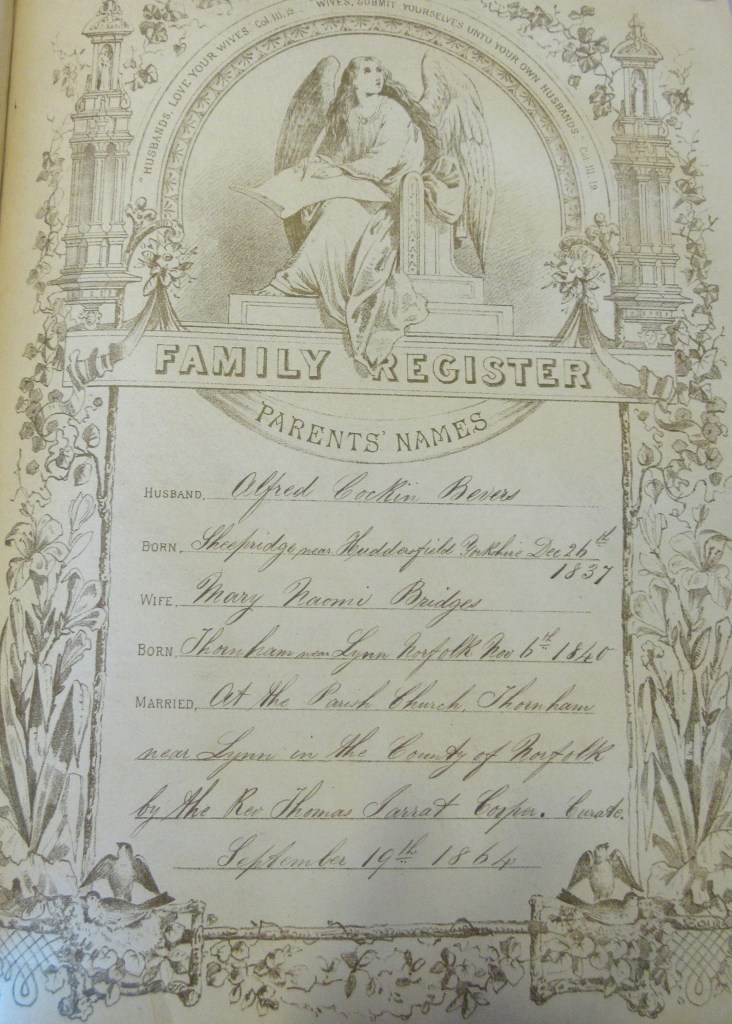 "HUSBANDS, LOVE YOUR WIVES" Col III. 19. WIVES, SUBMIT YOURSELVES UNTO YOUR OWN HUSBANDS Col III. 18
FAMILY REGISTER
PARENTS' NAMES
HUSBAND, Alfred Cockin Bevers
BORN, Sheepridge, near Huddersfield Yorkshire Dec 26th
1837
WIFE, Mary Naomi Bridges
BORN, Thornham near Lynn Norfolk Nov 6th 1840
MARRIED, At the Parish Church, Thornham
near Lynn in the County of Norfolk
by the Rev Thomas Jarrat Cooper. Curate.
September 19th 1864